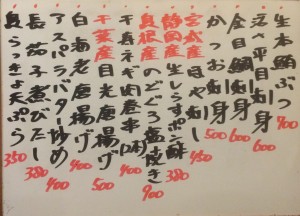 生本鮪ぶつ 900
活〆平目刺身 700
金目鯛刺身 600
かつお刺身 500
宮城産 ほや刺し 450
静岡産 生しらすポン酢 380
島根産 のどぐろ塩焼き 900
千寿ねぎ肉巻串 400
千葉産 目光唐揚げ 500
白海老唐揚げ 400
アスパラバター炒め 400
長茄子煮びたし 380
島らっきょ天ぷら 350